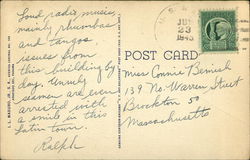 Loud radio music,
mainly rhumbas
and tangos
issues from
this building by
day. Unruly
seamen are even
arrested with
a smile in this
Latin town.
Ralph
POST CARD
JUL
23
1943
Miss Connie Benish
139 No. Warren Street
Brockton 59
Massachusetts